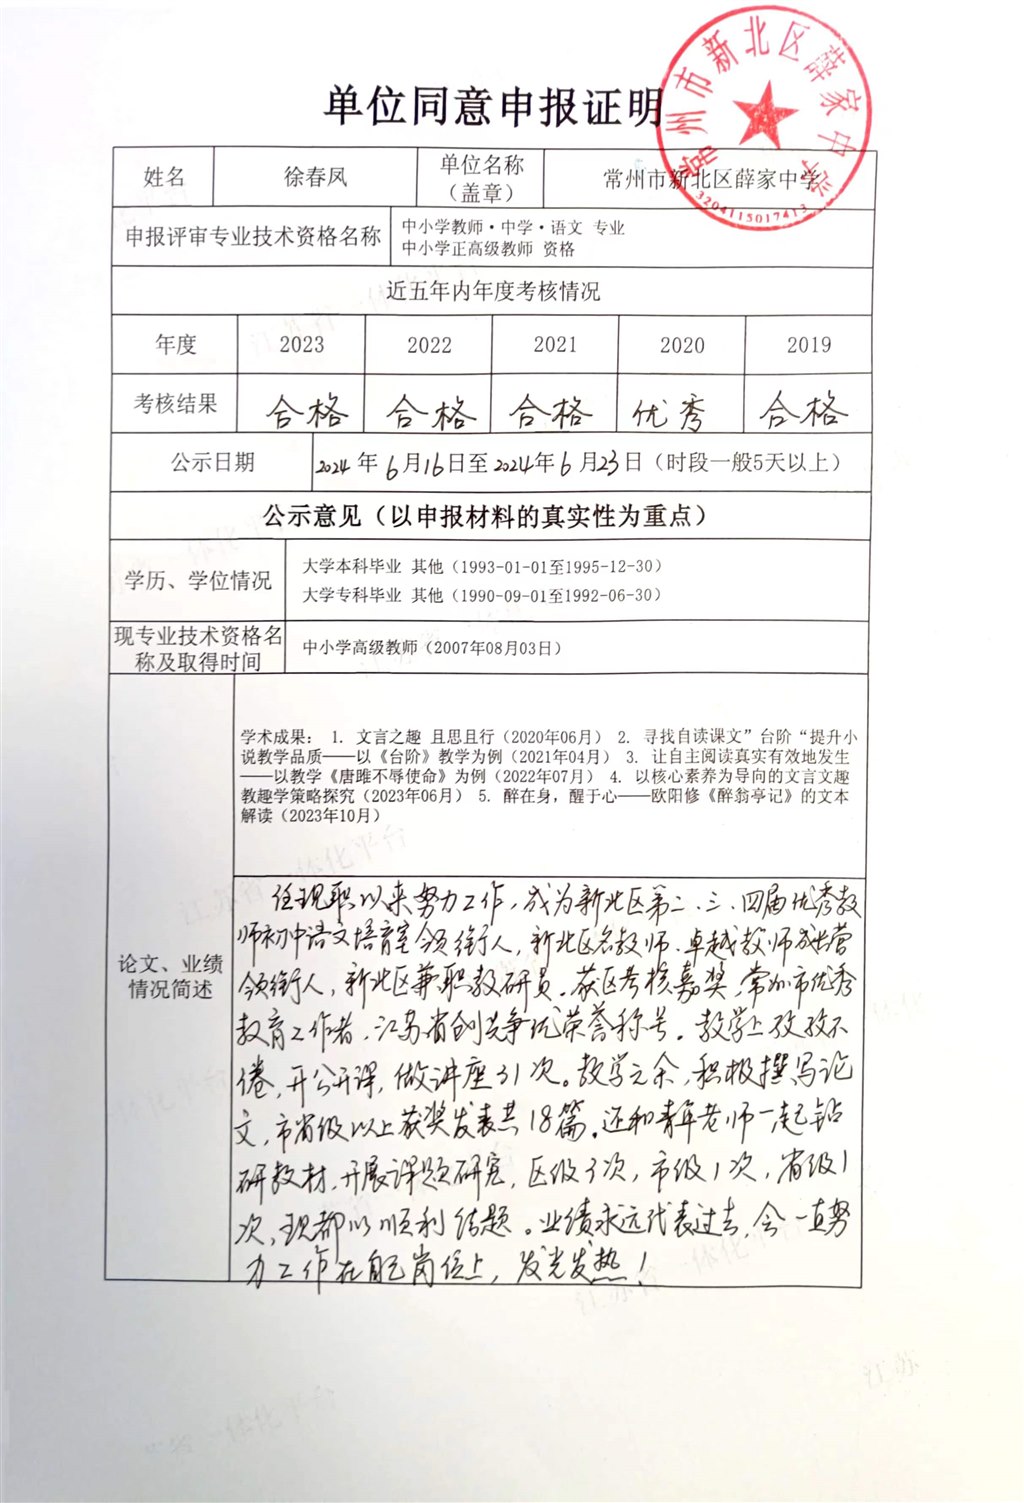 单位同意申报证明
常州市新北区薛家中学
3204115017413
姓名 徐春凤 单位名称（盖章） 常州市新北区薛家中学
申报评审专业技术资格名称 中小学教师·中学·语文 专业
中小学正高级教师 资格
近五年内年度考核情况
年度 2023 2022 2021 2020 2019
考核结果 合格 合格 合格 优秀 合格
公示日期 2024年6月16日至2024年6月23日（时段一般5天以上）
公示意见（以申报材料的真实性为重点）
学历、学位情况
大学本科毕业 其他（1993-01-01至1995-12-30）
大学专科毕业 其他（1990-09-01至1992-06-30）
现专业技术资格名
称及取得时间
中小学高级教师（2007年08月03日）
论文、业绩
情况简述
学术成果： 1. 文言之趣 且思且行（2020年06月） 2. 寻找自读课文”台阶“提升小
说教学品质——以《台阶》教学为例（2021年04月） 3. 让自主阅读真实有效地发生
——以教学《唐雎不辱使命》为例（2022年07月） 4. 以核心素养为导向的文言文趣
教趣学策略探究（2023年06月） 5. 醉在身，醒于心——欧阳修《醉翁亭记》的文本
解读（2023年10月）
任现职以来努力工作，成为新北区第二、三、四届优秀教
师初中语文培育室领衔人，新北区名教师、卓越教师成长营
领衔人，新北区兼职教研员。获区考核嘉奖，常州市优秀
教育工作者，江苏省创先争优荣誉称号。教学上孜孜不
倦，开公开课，做讲座31次。教学之余，积极撰写论
文，市省级以上获奖发表共18篇。还和青年老师一起钻
研教材，开展课题研究，区级3次，市级1次，省级1
次，现都以顺利结题。业绩永远代表过去，会一直努
力工作在自己岗位上，发光发热！